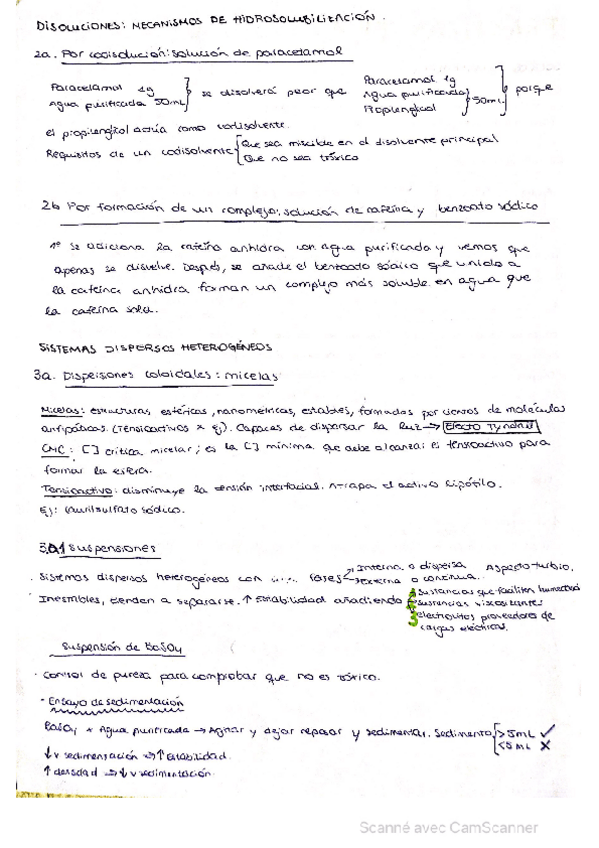 DISOLUCIONES: MECANISMOS DE HIDROSOLUBILIZACIÓN.
2a. Por codisolución: solución de paracetamol
Paracetamol 1g
Agua purificada 50mL
se disolverá peor que
Paracetamol 1g
Agua purificada
Propilenglicol
50mL
porque
el propilenglicol actúa como codisolvente.
Requisitos de un codisolvente
Que sea miscible en el disolvente principal
Que no sea tóxico
2b Por formación de un complejo: solución de cafeína y benzoato sódico
1º se adiciona la cafeína anhidra con agua purificada y vemos que
apenas se disuelve. Después, se añade el benzoato sódico que unido a
la cafeína anhidra forman un complejo más soluble en agua que
la cafeína sola.
SISTEMAS DISPERSOS HETEROGÉNEOS
3a. Dispersiones coloidales: micelas
Micelas: estructuras esféricas, nanométricas, estables, formadas por cientos de moléculas
antipáticas. (Tensioactivos x ej). Capaces de dispersar la luz → Efecto Tyndall
CMC: [] crítica micelar; es la [] mínima que debe alcanzar el tensioactivo para
formar la esfera.
Tensioactivo: disminuye la tensión interfacial. Atrapa el activo lipófilo.
Ej: laurilsulfato sódico.
Suspensiones
· Sistemas dispersos heterogéneos con ..... fases
Interna o dispersa
Externa o continua.
Aspecto turbio.
· Inestables, tienden a separarse. ↑ Estabilidad añadiendo
sustancias que faciliten humectación
sustancias viscosizantes
3 electrolitos proveedores de
cargas eléctricas.
Suspensión de BaSO4
· Control de pureza para comprobar que no es tóxico.
- Ensayo de sedimentación
BaSO4 + Agua purificada → Agitar y dejar reposar y sedimentar. Sedimento
>5mL ✓
<5mL X
↓v sedimentación → ↑ Estabilidad.
↑ densidad → ↓v sedimentación.
Scanné avec CamScanner